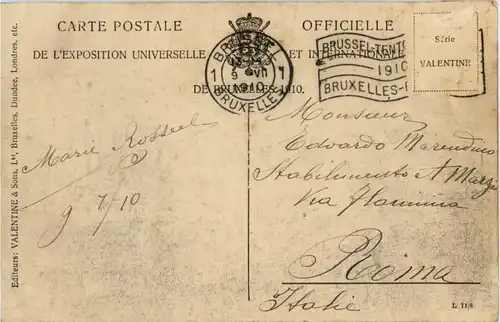 CARTE POSTALE OFFICIELLE
DE L'EXPOSITION UNIVERSELLE ET INTERNATIONALE
DE BRUXELLES 1910.
BRUSSEL
1 1
9 VII
1910
BRUXELLES
BRUSSEL-TENTO
1910
BRUXELLES-
Série
VALENTINE
Editeurs: VALENTINE & Sons, Ld, Bruxelles, Dundee, Londres, etc.
Marie Rosseel
9 7/10
Monsieur
Edoardo Marendino
Stabilimento A Marzi
Via Flaminia
Roma
Italie
L 718